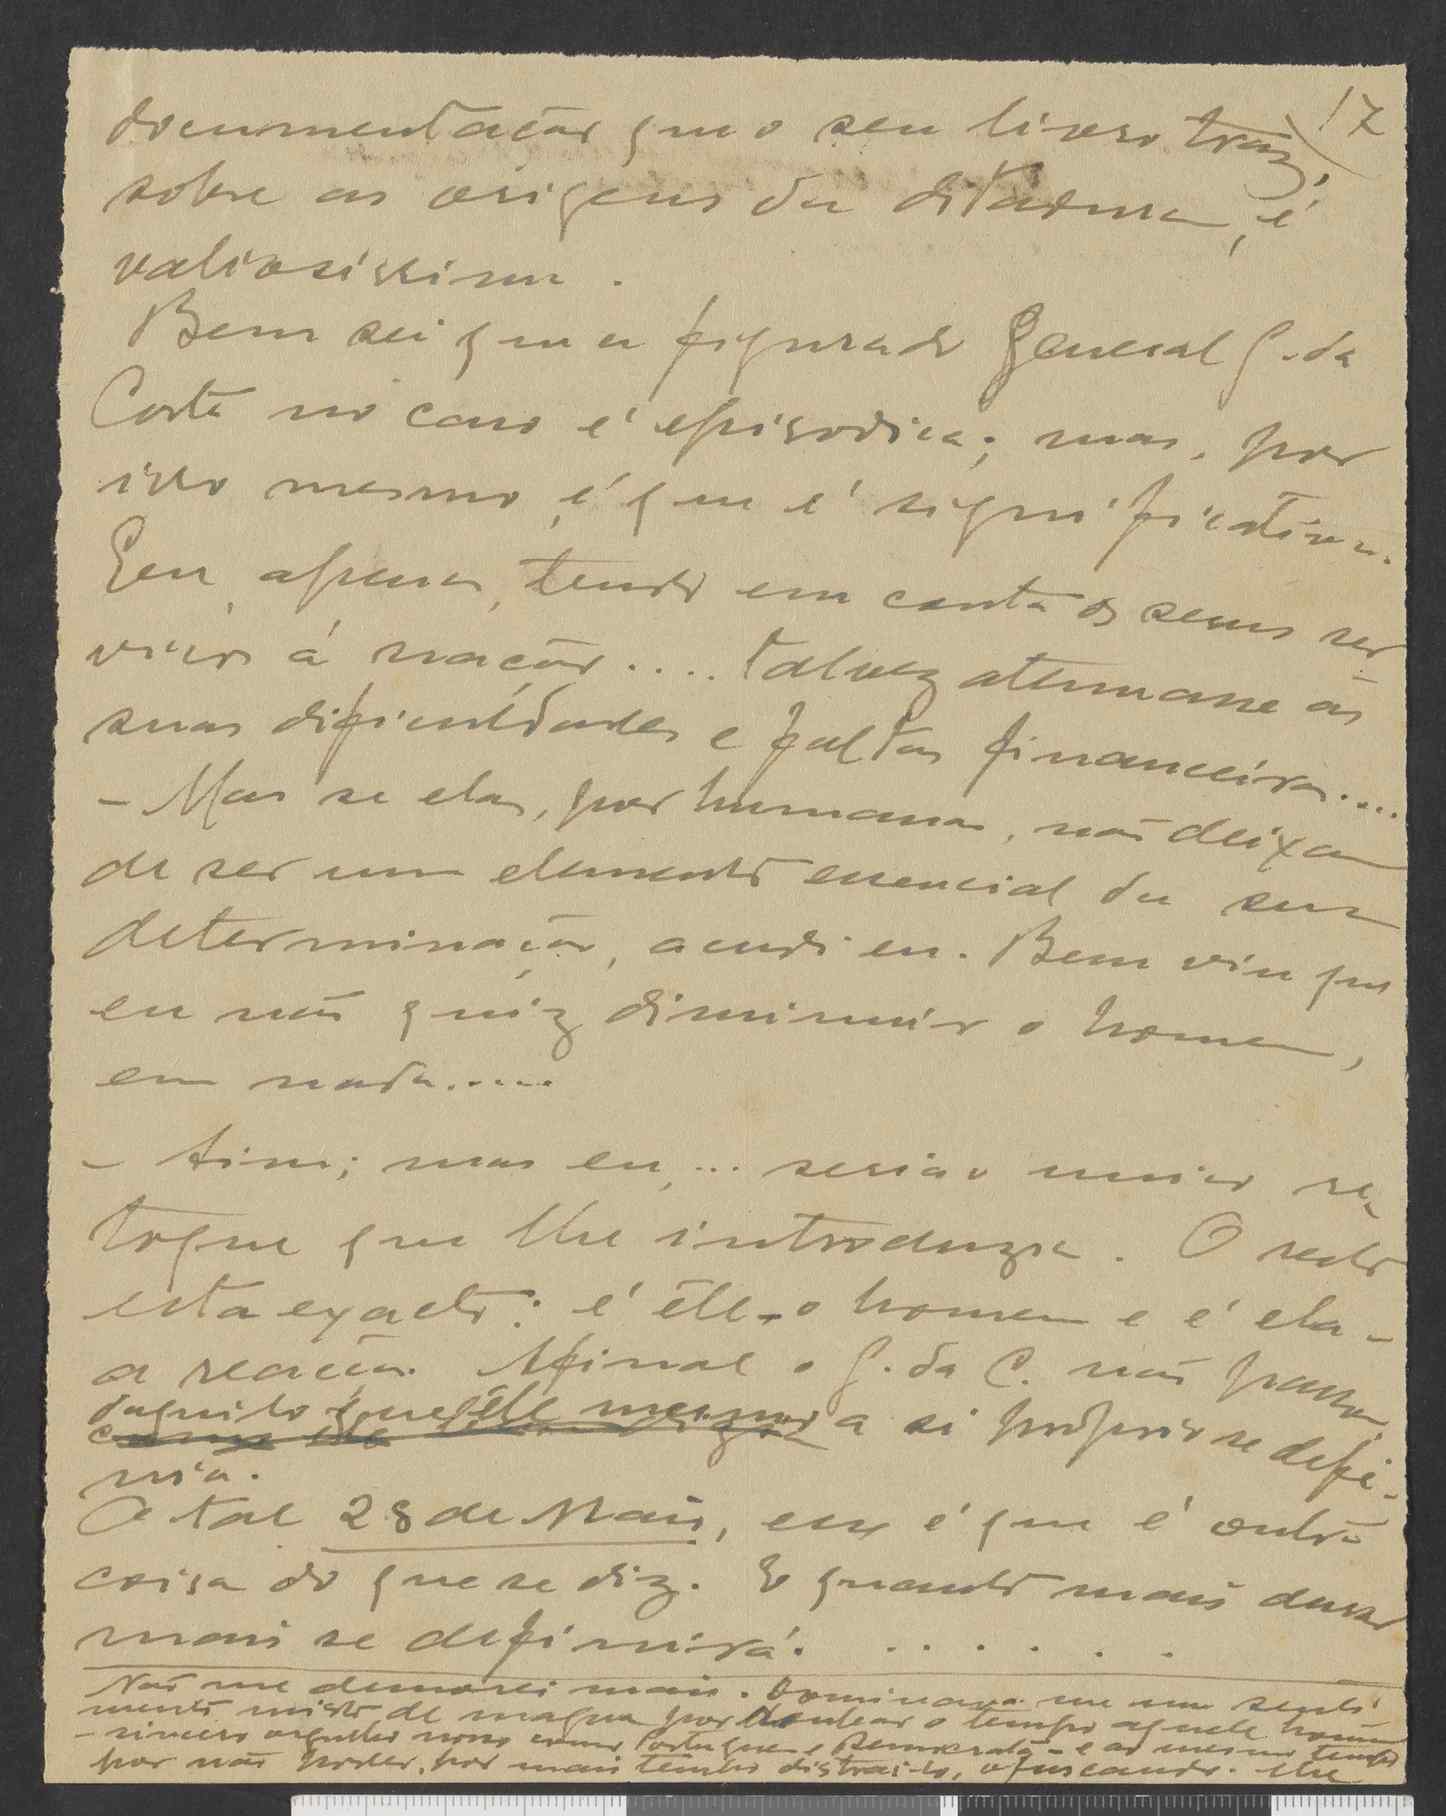 17
documentação que o seu livro traz,
sobre as origens da ditadura, é
valiosissima.
Bem sei que a figura do General G. da
Costa no caso é episodica; mas, por
isso mesmo, é que é significativa.
Eu, apenas, tendo em conta os seus ser-
viços á nação.... talvez atenuasse as
suas dificuldades e faltas financeiras....
- Mas se elas, por humanas, não deixam
de ser um elemento essencial da sua
determinação, acudi eu. Bem viu que
eu não quiz diminuir o homem,
em nada.....
- Sim; mas eu,... seria o unico re-
toque que lhe introduzia. O resto
está exacto: é êle - o homem e é ela -
a reacção. Afinal o G. da C. não passou
daquilo que êle mesmo a si próprio se defi-
nia.
O tal 28 de Maio, esse é que é outra
coisa do que se diz. E quanto mais durar
mais se definirá. . . . . . .
Não me demorei mais. Dominava-me um senti-
mento misto de magua por roubar o tempo aquele homem
- sincero orgulho nosso como Portuguez e Democrata - e ao mesmo tempo
por não poder, por mais tempo distrai-lo, ofuscando-lhe